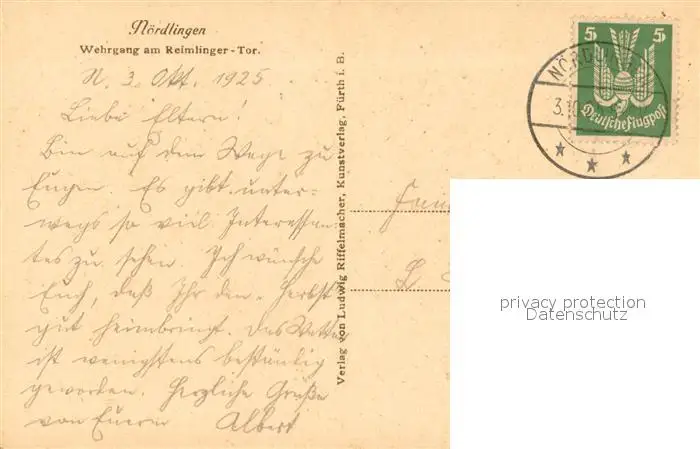 Nördlingen
Wehrgang am Reimlinger-Tor.
N. 3. Okt. 1925
Liebe Eltern!
Bin auf dem Wege zu
Eugen. Es gibt unter=
wegs so viel Interessan
tes zu sehen. Ich wünsche
Euch, daß Ihr den Herbst
gut heimbringt. Das Wetter
ist wenigstens beständig
geworden. Herzliche Grüße
von Euerm Albert
Verlag von Ludwig Riffelmacher, Kunstverlag, Fürth i. B.
5 5
Deutsche Flugpost
NÖRDLINGEN
3.
Fam
L
privacy protection
Datenschutz